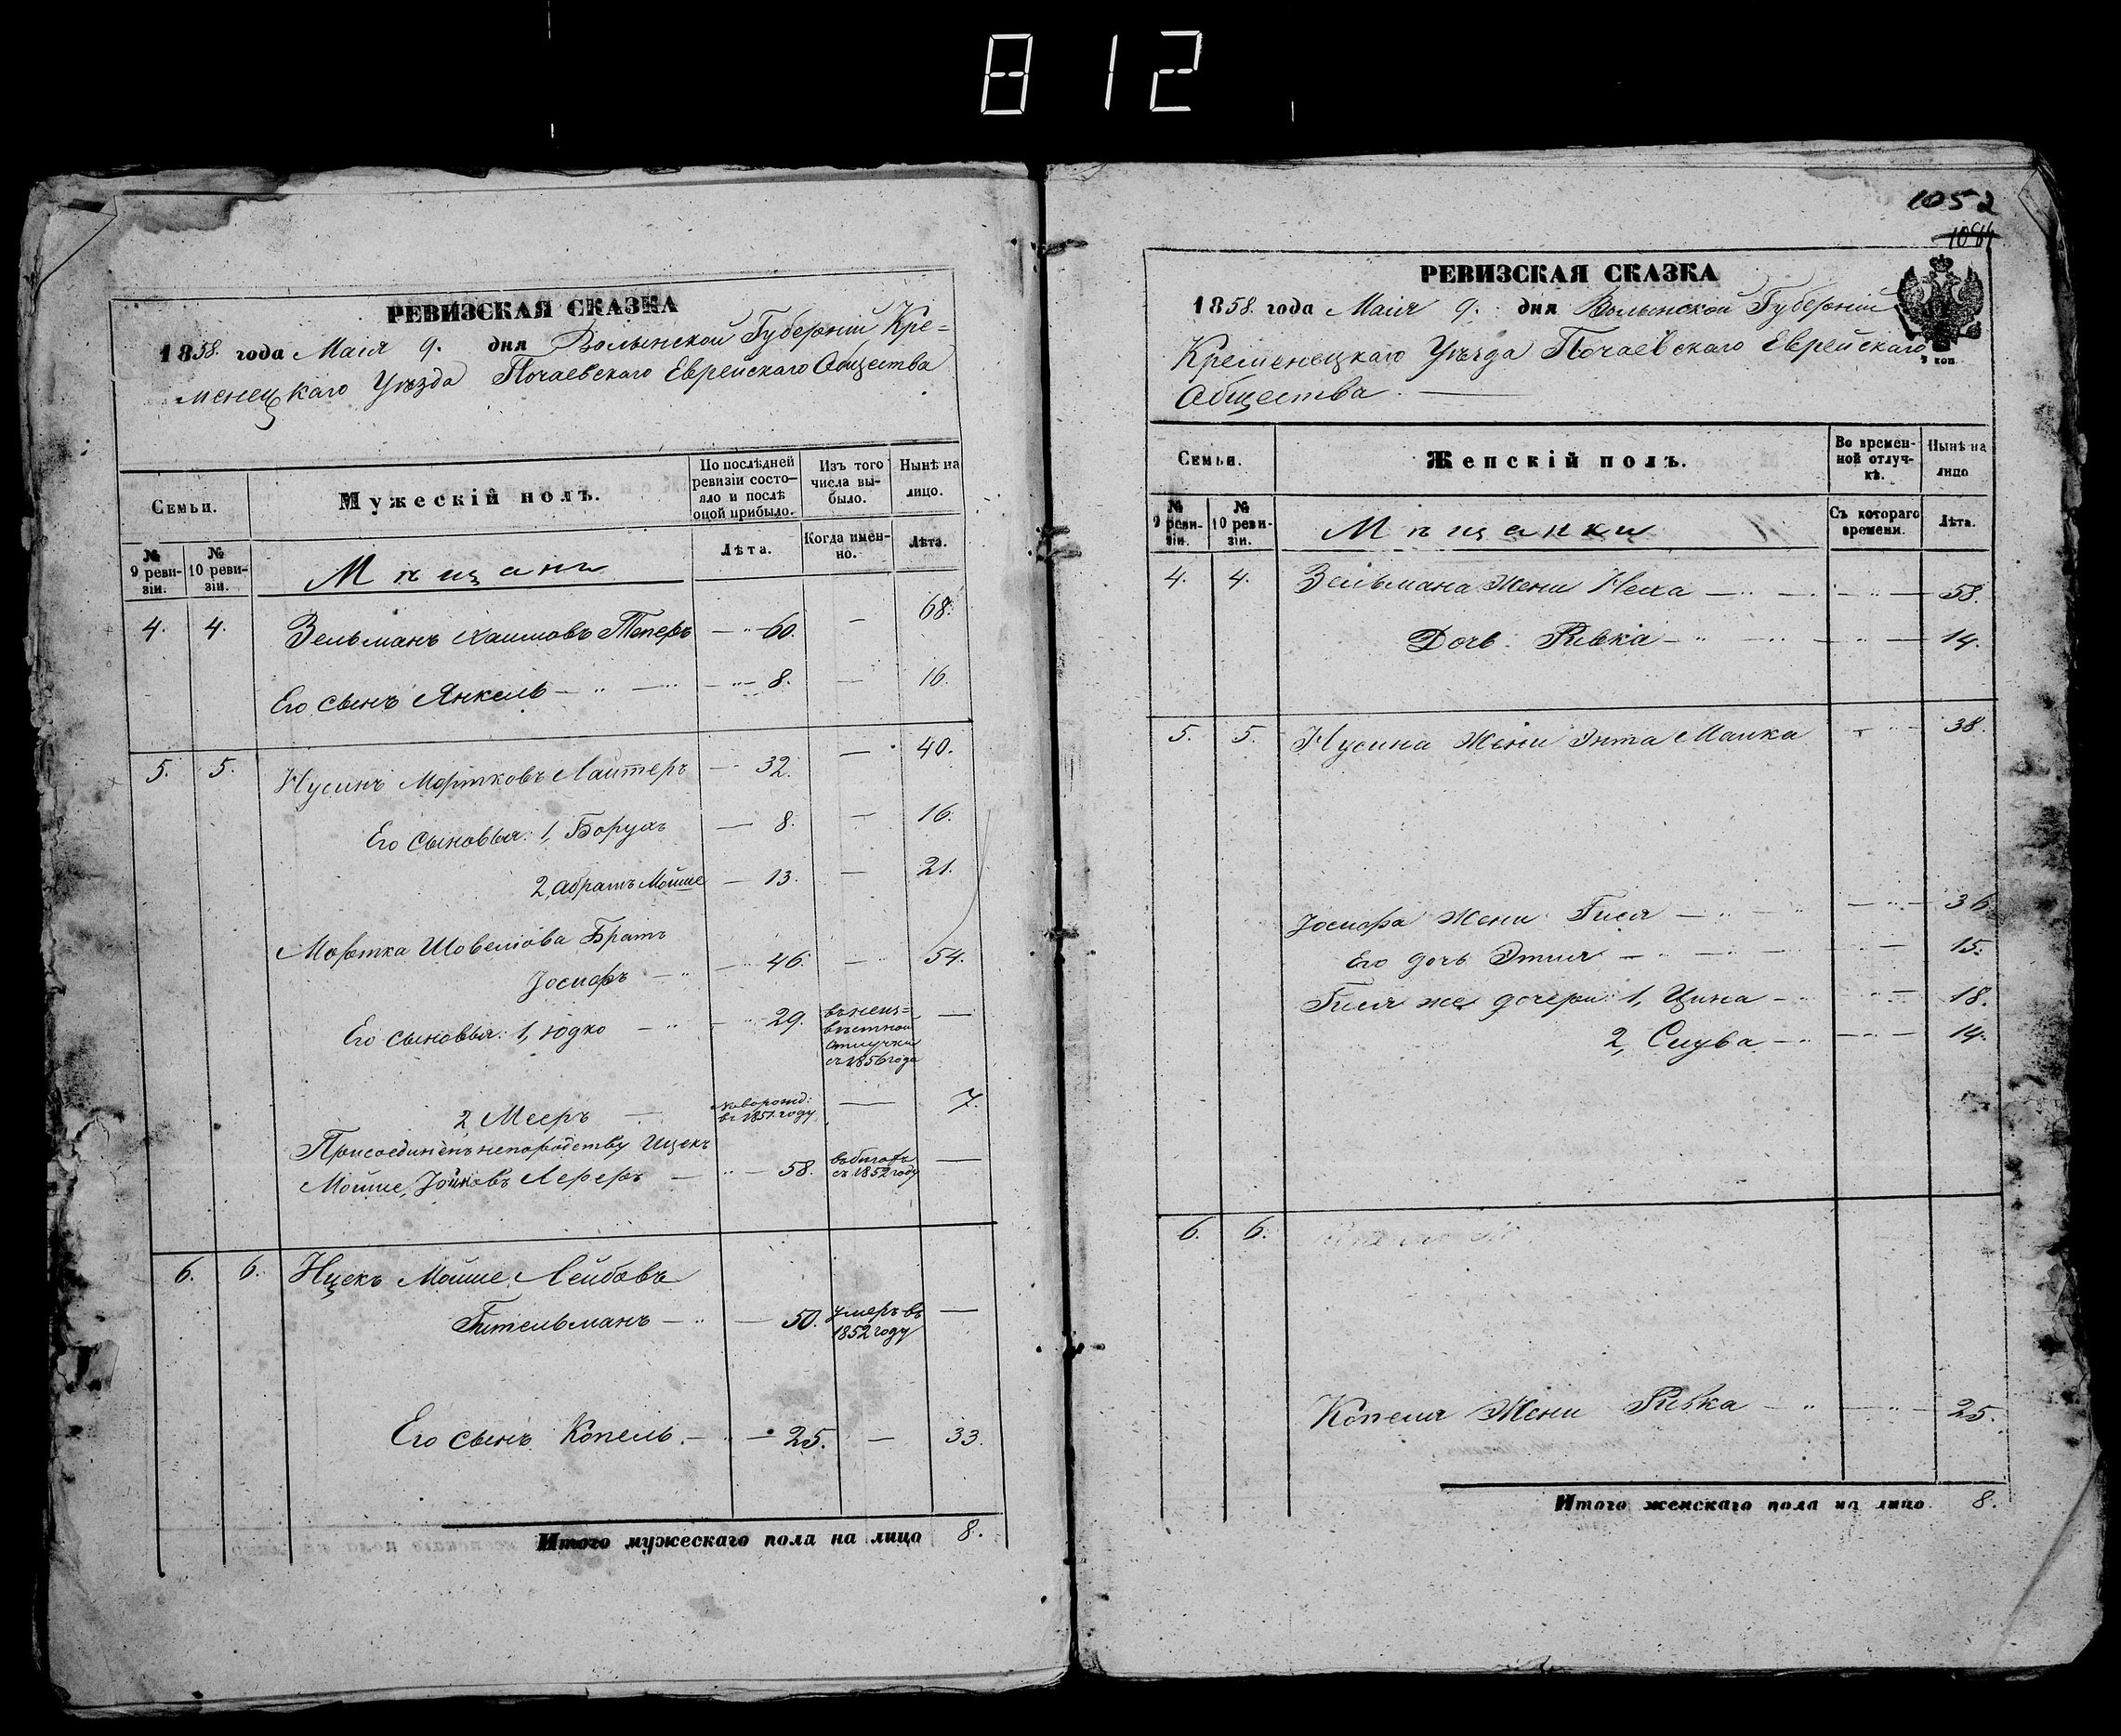 812
РЕВИЗСКАЯ СКАЗКА
1858. года Маія 9. дня Волынской Губерніи Кре=
менецкаго Уѣзда Почаевскаго Еврейскаго Общества
Семьи.
Мужескій полъ.
По послѣдней ревизіи состо-яло и послѣ оной прибыло.
Изъ того числа вы-было.
Нынѣ на лицо.
№ 9 реви-зіи.
№ 10 реви-зіи.
Мѣщанѣ
Лѣта.
Когда имен-но.
Лѣта.
4. 4. Зельманъ Хаимовъ Теперъ 60. — 68.
Его сынъ Янкель 8. — 16.
5. 5. Нусинъ Мортковъ Лайтеръ 32. — 40.
Его сыновья: 1, Борухъ 8. — 16.
2, Абрамъ Мойше 13. — 21.
Мортка Шовелiова Братъ
Іосифъ 46. — 54.
Его сыновья: 1, Юдко 29. въ неиз=вѣстной отлучки съ 1856 года —
2, Мееръ Новорожд: въ 1851 году — 7.
Присоединенъ непородству Ицекъ
Мойше, Лереръ 58. съ 1852 году —
6. 6. Ицекъ Мойше Лейбовъ
Гительманъ 50. умеръ въ 1852 году —
Его сынъ Копель 25. — 33.
Итого мужескаго пола на лицо 8.
1052
1084
РЕВИЗСКАЯ СКАЗКА
1858. года Маія 9. дня Волынской Губерніи
Кременецкаго Уѣзда Почаевскаго Еврейскаго
Общества.
Семьи.
Женскій полъ.
Во времен-ной отлуч-кѣ.
Нынѣ на лицо
№ 9 реви-зіи.
№ 10 реви-зіи.
Мѣщанки
Съ котораго времени.
Лѣта.
4. 4. Зельмана Жена Неха 58.
Дочь Ривка 14.
5. 5. Нусина Жена Энта Малка 38.
Іосифа Жена Гися 36
Его дочь Этля 15.
Гиси же дочери: 1, Цина 18.
2, Слува 14.
6. 6.
Копеля Жена Ривка 25.
Итого женскаго пола на лицо 8.